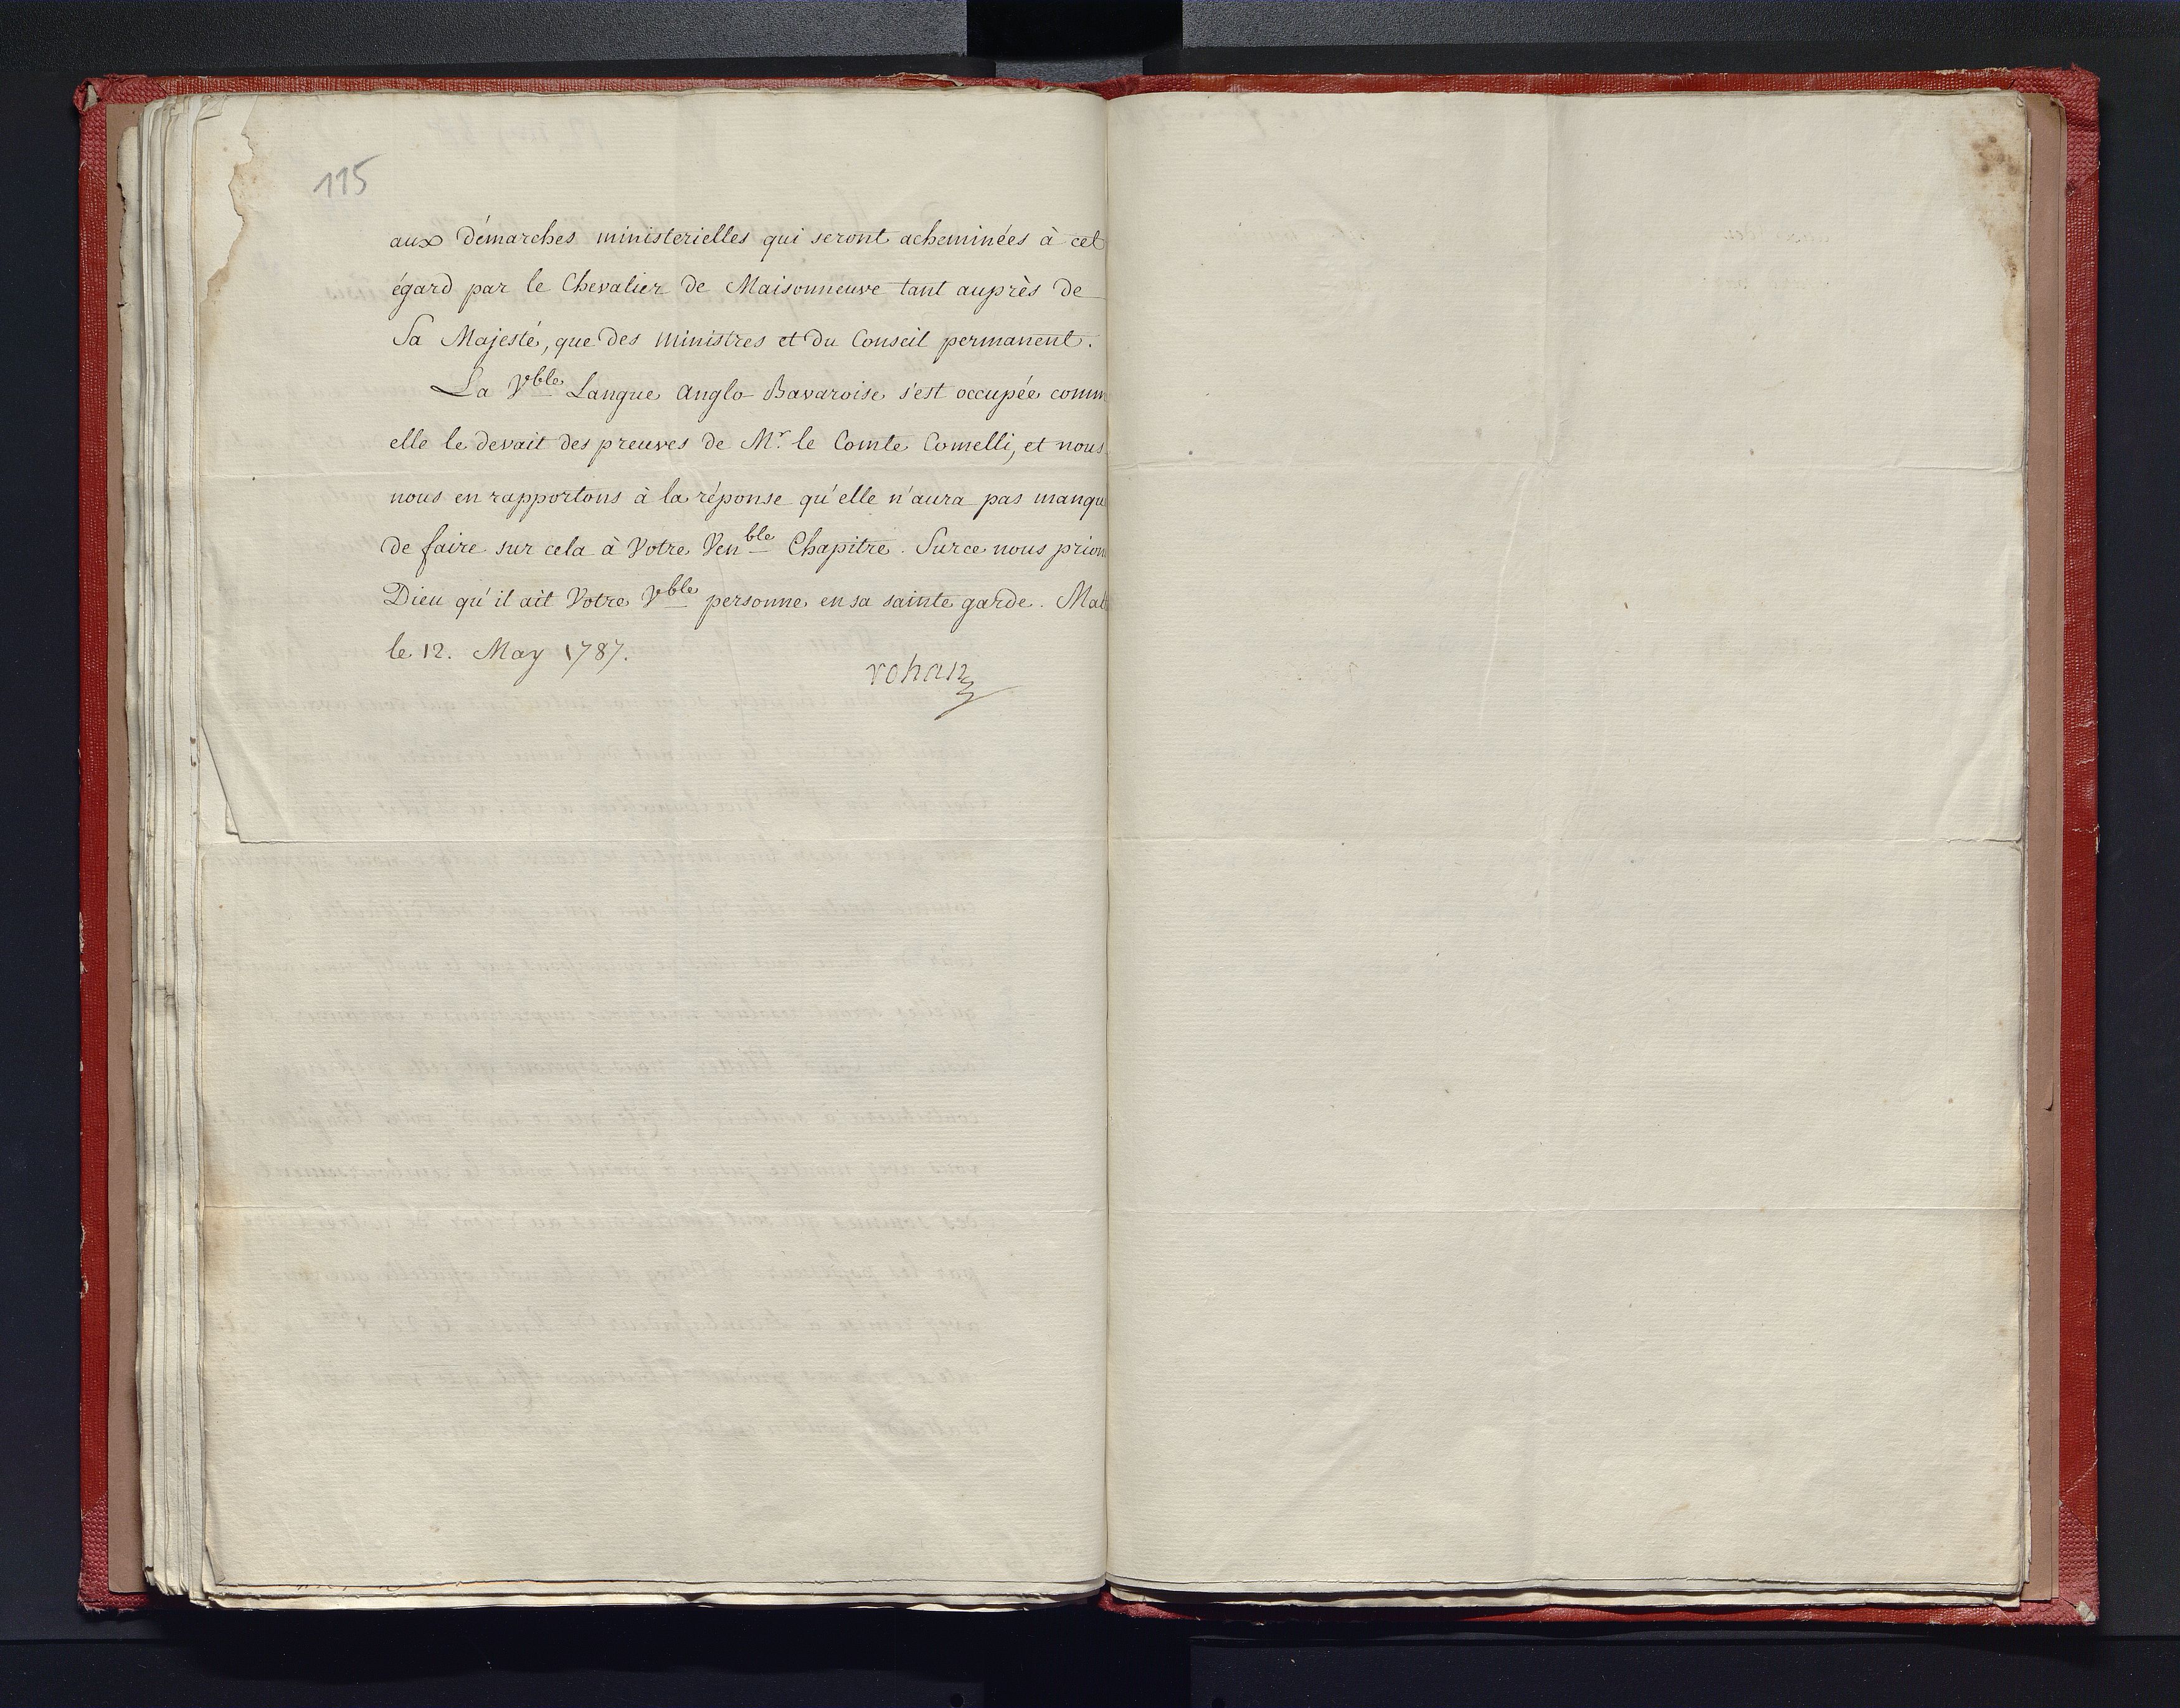 115
aux démarches ministerielles qui seront acheminées à cet
égard par le Chevalier de Maisonneuve tant auprès de
Sa Majesté, que des Ministres et du Conseil permanent.
La Vble Langue Anglo-Bavaroise s'est occupée comm
elle le devait des preuves de Mr. le Comte Comelli, et nous
nous en rapportons à la réponse qu'elle n'aura pas manqu
de faire sur cela à Votre Venble Chapitre. Sur ce nous prion
Dieu qu'il ait Votre Vble personne en sa sainte garde. Mal
le 12. May 1787.
rohan